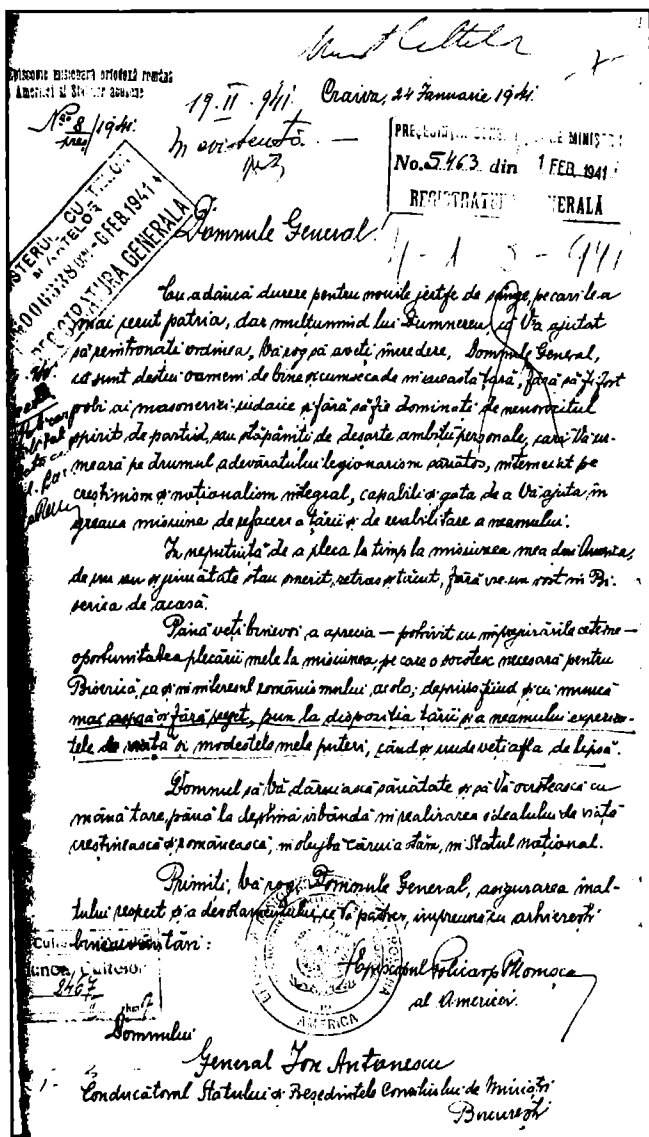 Minist. Cultelor
Episcopia misionară ortodoxă română
Americei și
19.II.941. Craiova, 24 Ianuarie 1941.
No 8/1941
pres
În
PREȘEDINȚIA DE MINIȘTRI
No. 5.463 din 1 FEB. 1941
REGISTRATURA GENERALĂ
MINISTERUL CULTELOR
ȘI ARTELOR
FEB. 1941
REGISTRATURA GENERALĂ
Domnule General,
Cu adâncă durere pentru nouile jertfe de sânge, pe cari le-a
mai cerut patria, dar mulțumind lui Dumnezeu, că Vă ajutat
să reîntronați ordinea, Vă rog să aveți încredere, Domnule General,
că sunt destui oameni de bine și cumsecade în această țară, fără să fi fost
robi ai masoneriei iudaice și fără să fie dominați de nenorocitul
spirit de partid, sau stăpâniți de deșarte ambiții personale, cari Vă ur-
mează pe drumul adevăratului legionarism sănătos, întemeiat pe
creștinism și naționalism integral, capabili și gata de a Vă ajuta în
greaua misiune de refacere a țării și de reabilitare a neamului.
În neputință de a pleca la timp la misiunea mea din America,
de un an și jumătate stau retras și tăcut, fără vre-un rost în Bi-
serica de acasă.
Până veți binevoi a aprecia — potrivit cu împrejurările externe —
oportunitatea plecării mele la misiunea, pe care o socotesc necesară pentru
Biserică, ca și în interesul românismului acolo; deprins fiind și cu munca
mai aspră și fără pun la dispoziția țării și a neamului experien-
țele de viață și modestele mele puteri, când și unde veți afla de lipsă.
Domnul să Vă dăruiască sănătate și să Vă ocrotească cu
mână tare, până la deplină izbândă în realizarea idealului de viață
creștinească și românească, în slujba căruia stăm, în Statul național.
Primiți, Vă rog, Domnule General, asigurarea înal-
tului respect și a devotamentului, ce Vă păstrez, împreună cu arhierești
binecuvântări:
Cultelor
2467
AMERICA
Episcopul Policarp Morușca
al Americei.
Domnului
General Ion Antonescu
Conducătorul Statului și Președintele Consiliului de Miniștri
București